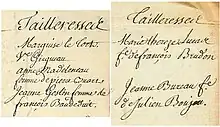 Tailleresses
Marquise le Cort
anne Madeleneau
femme de pierre Huart
Jeanne Goslin femme de
francois Baudduit
Tailleresses
Marie therese Lucas
fe de francois Bradon
Jeanne Bureau fe
de Julien Boujou